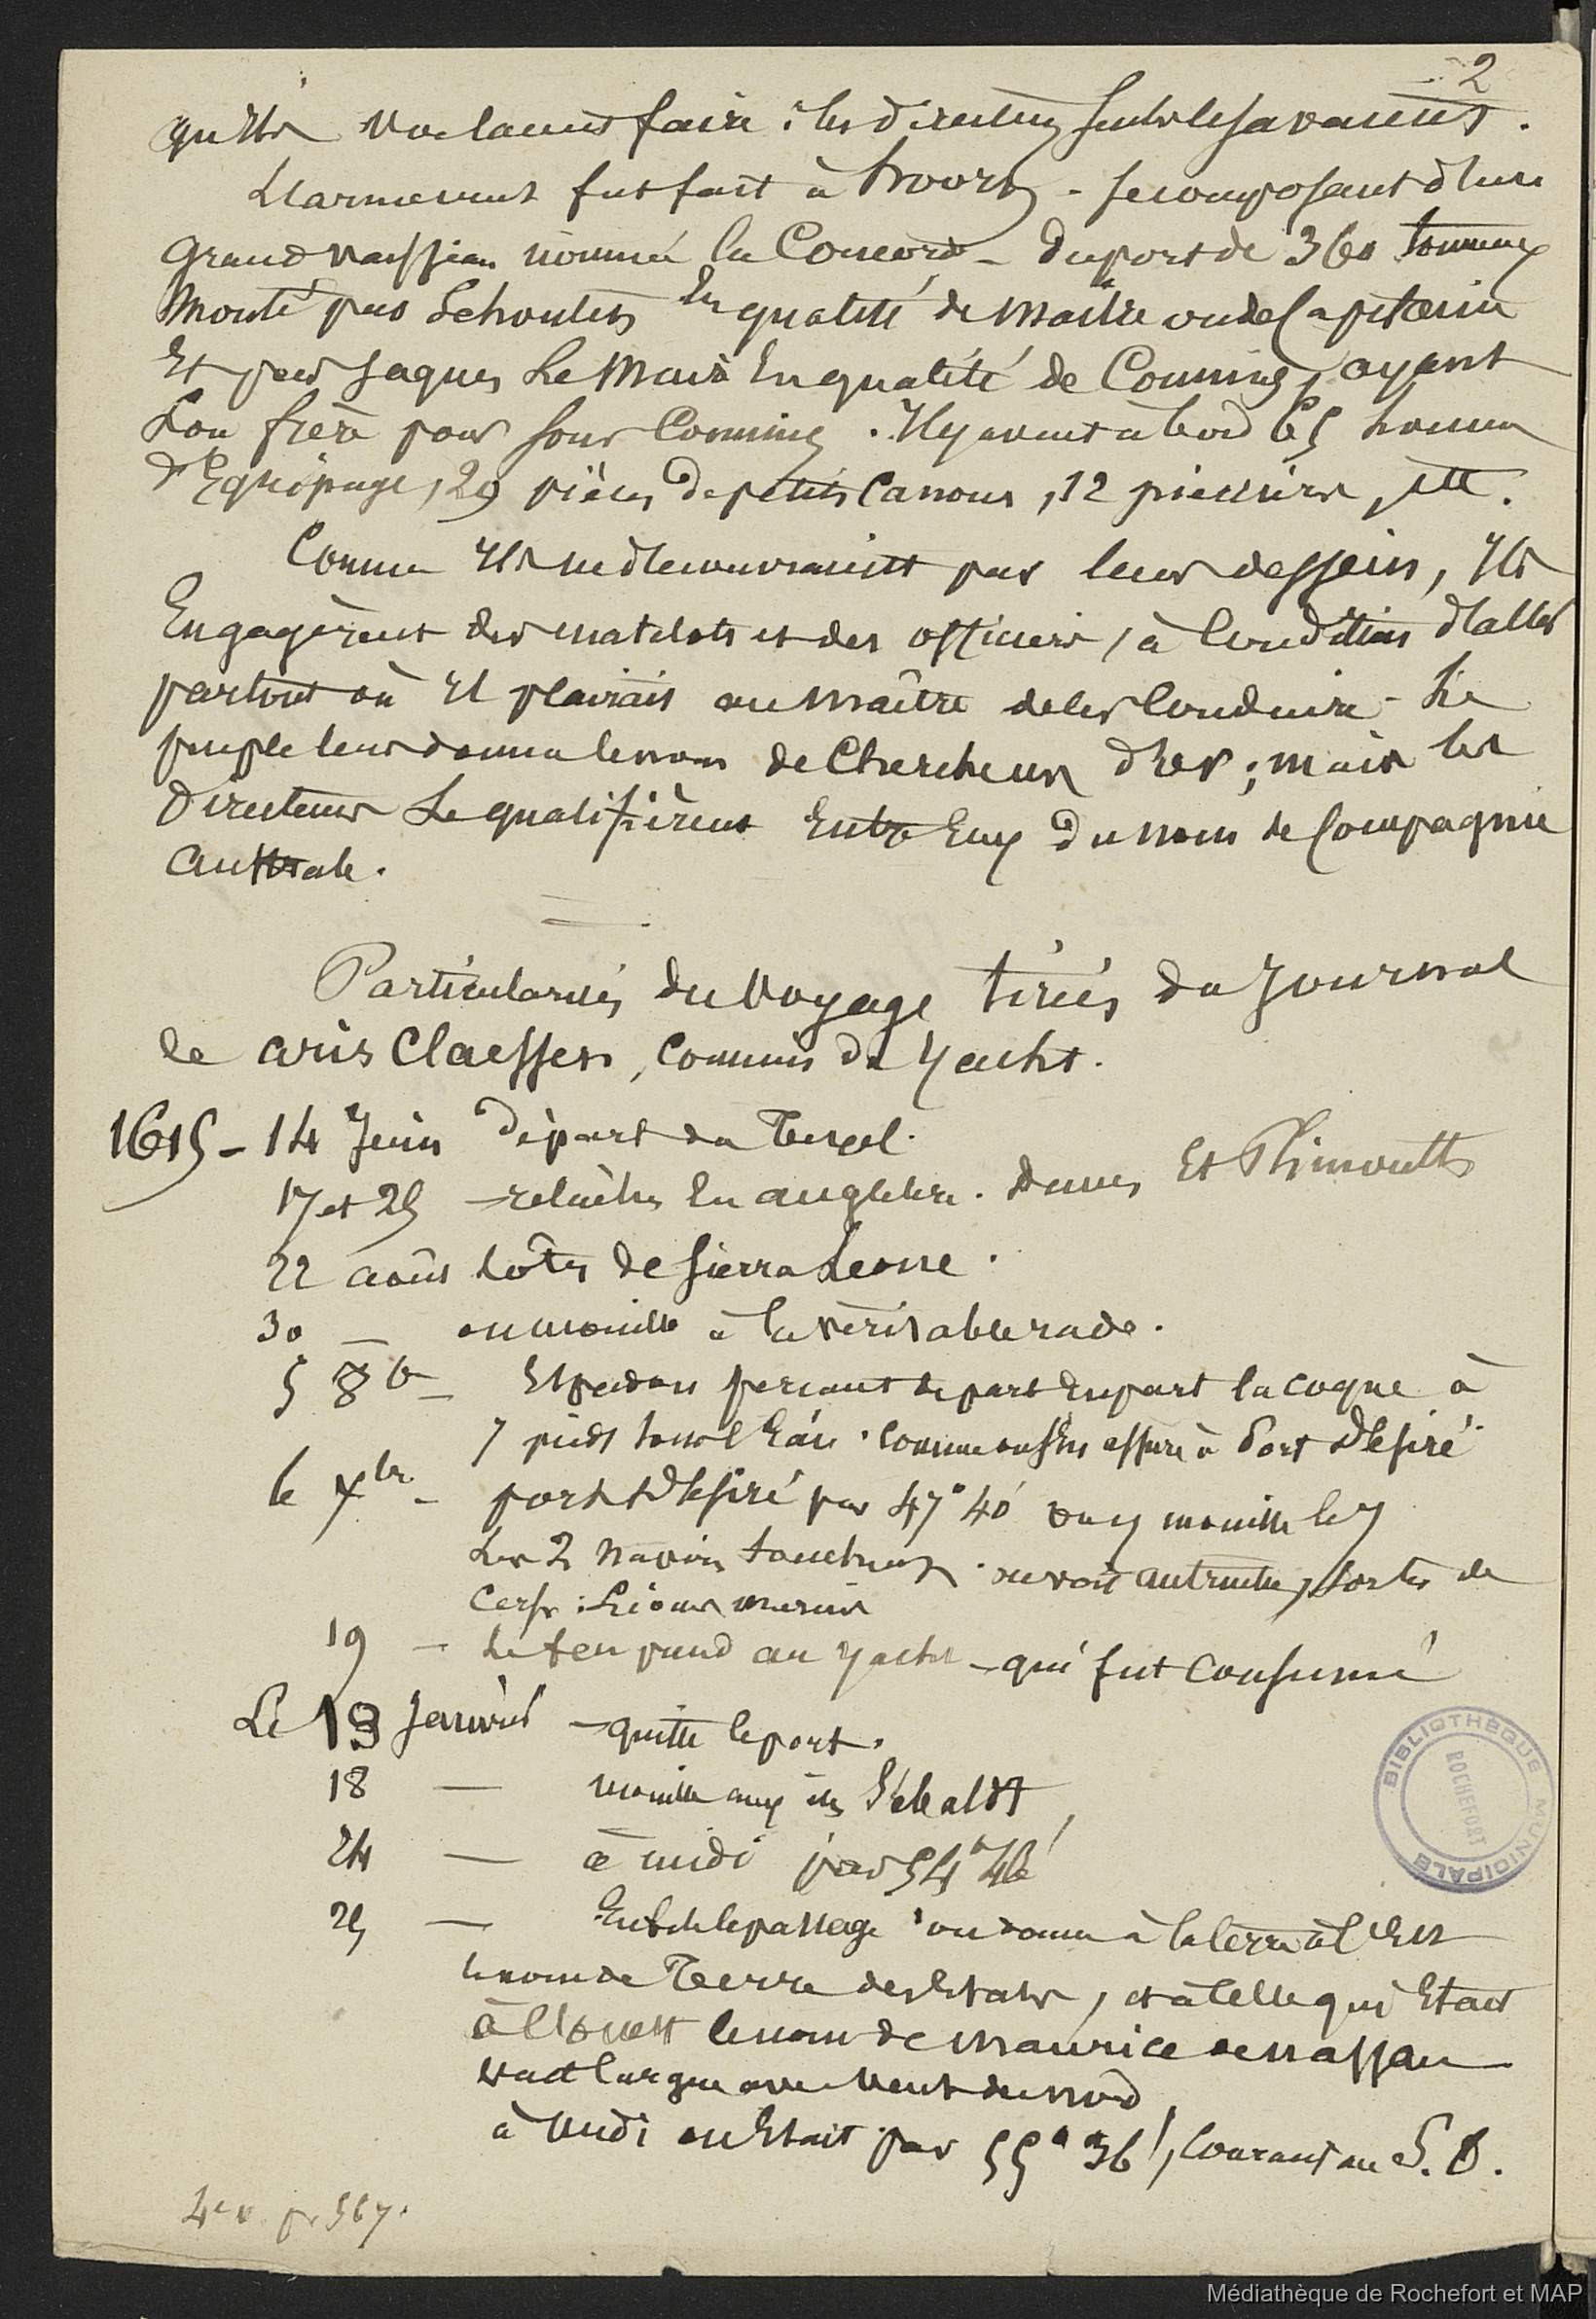 2
qu'ils voulaient faire : les directeurs seuls le savaient.
L'armement fut fait à hoorn - se composant d'un
grand vaisseau nommé la Concorde - du port de 360 tonneaux
monté par Schouten En qualité de maître ou de Capitaine
Et par Jaques Le Maire En qualité de Commis, ayant
Son frère pour sous Commis. Il y avait à bord 65 hommes
d'Equipage, 29 pièces de petits Canons, 12 pierriers, ett.
Comme Ils ne découvraient pas leur dessein, Ils
Engagèrent des matelots et des officiers, à Condition d'aller
partout où Il plairait au maître de les Conduire - Le
peuple leur donna le nom de Chercheurs d'or ; mais les
directeurs Se qualifièrent Entre Eux du nom de Compagnie
australe.
Particularités du Voyage tirées du Journal
de aris Claessen, Commis du Yacht.
1615 - 14 Juin départ du Texel.
17 et 25 - relâches En angleterre. Dunes Et Plimouth
22 août côtes de Sierra Leone.
30 - on mouille à la véritable rade.
5 8bre - Espadon perçant de part En part la coque à
7 pieds sous l'Eau. comme on s'en assure à Port Désiré
le Xbre - port Désiré par 47° 40' on y mouille le 7
Les 2 navires touchent. on voit autruches, sortes de
Cerfs. Lions marins
19 - Le feu prend au yacht - qui fut consumé
Le 13 Janvier - quitte le port.
18 - mouille aux îles Sebaldt,
24 - à midi par 54° 46'
25 - Entre le passage on donne à la terre à l'Est
le nom de Terre des Etats, et à Celle qui Etait
à l'ouest le nom de maurice de nassau
vent largue avec vent du nord,
à midi on Etait par 55° 36', Courant au S. O.
4e v. p. 567.
BIBLIOTHÈQUE MUNICIPALE
ROCHEFORT
Médiathèque de Rochefort et MAP